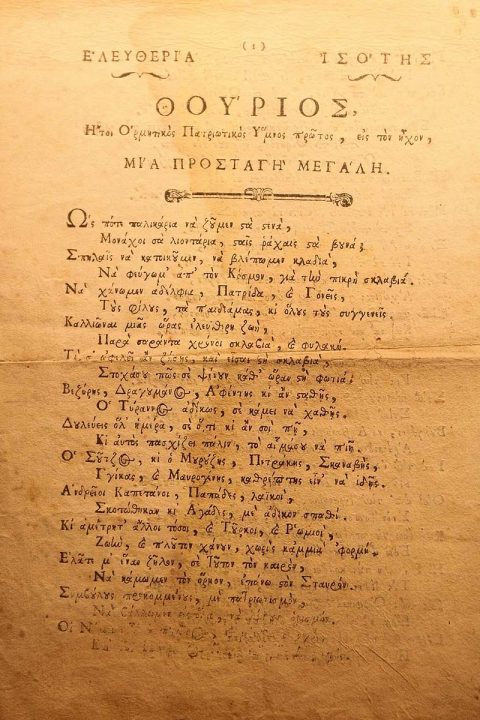 (1)
ἘΛΕΥΘΕΡΊΑ ἸΣΌΤΗΣ
ΘΟΎΡΙΟΣ,
Ἤτοι Ὁρμητικὸς Πατριωτικὸς Ὕμνος πρῶτος, εἰς τὸν ἦχον,
ΜΊΑ ΠΡΟΣΤΑΓῊ ΜΕΓΆΛΗ.
Ὡς πότε παλικάρια νὰ ζȣμεν ϛὰ ϛενά,
Μονάχοι σὰ λιοντάρια, ϛαῖς ῥάχαις ϛὰ βȣνά;
Σπηλαῖς νὰ κατοικȣμεν, νὰ βλέπωμεν κλαδιά,
Νὰ φεύγωμ' ἀπ' τὸν Κόσμον, γιὰ τὴν πικρὴ σκλαβιά.
Νὰ χάνωμεν ἀδέλφια, Πατρίδα, ϗ Γονεῖς,
Τοὺς φίλȣς, τὰ παιδιάμας, κι ὅλȣς τȣς συγγενεῖς
Καλλιῶναι μιῆς ὥρας ἐλεύθερη ζωή,
Παρὰ σαράντα χρόνοι σκλαβιά, ϗ φυλακή.
Τί σ' ὀφελεῖ ἂν ζήσῃς, καὶ εἶσαι ϛὴ σκλαβιά,
Στοχάσȣ πῶς σὲ ψένȣν καθ' ὥραν ϛὴ φωτιά.
Βεζύρης, Δραγȣμάνος, Ἀφέντης κι ἂν ϛαθῇς,
Ὁ Τύραννος ἀδίκως, σὲ κάμει νὰ χαθῇς.
Δȣλεύεις ὅλ' ἡμέρα, σὲ ὅ,τι κι ἂν σοὶ πῇ,
Κι αὐτὸς πασχίζει πάλιν, τὸ αἷμάσȣ νὰ πιῇ.
Ὁ Σȣτζος, κι ὁ Μȣρȣζης, Πετράκης, Σκαναβῆς,
Γγίκας, ϗ Μαυρογένης, καθρέπτης εἶν' νὰ ἰδῇς.
Ἀνδρεῖοι Καπετάνοι, Παπάδες, λαϊκοί,
Σκοτώθηκαν κι Ἀγάδες, μὲ ἄδικον σπαθί.
Κι ἀμέτρητ' ἄλλοι τόσοι, ϗ Τȣρκοι, ϗ Ῥωμιοί,
Ζωὴν, ϗ πλȣτον χάνȣν, χωρὶς καμμιὰ 'φορμή.
Ἐλᾶτε μ' ἕναν ζῆλον, σὲ τȣτον τὸν καιρόν,
Νὰ κάμωμεν τὸν ὅρκον, ἐπάνω ϛὸν Σταυρόν.
Συμβȣλȣς προκομμένȣς, μὲ πατριωτισμόν,
Νὰ βάλλωμεν